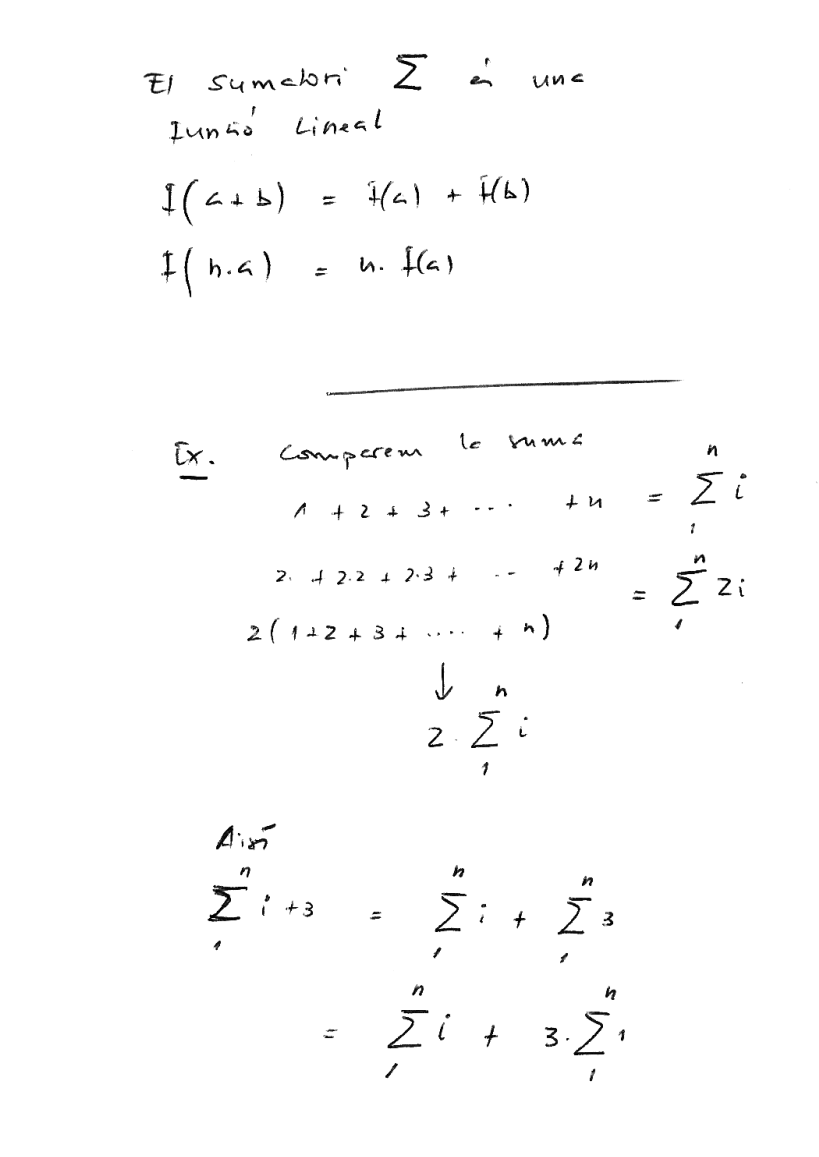 El sumatori Σ és una
funció Lineal
f(a+b) = f(a) + f(b)
f(n.a) = n. f(a)
Ex. Comparem la suma
1 + 2 + 3 + ... + n = Σ₁ⁿ i
2. + 2.2 + 2.3 + .. + 2n = Σ₁ⁿ 2i
2(1+2+3+ .... + n)
↓
2. Σ₁ⁿ i
Així
Σ₁ⁿ i+3 = Σ₁ⁿ i + Σ₁ⁿ 3
= Σ₁ⁿ i + 3.Σ₁ⁿ 1